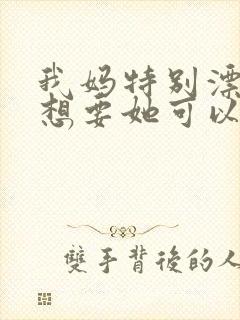 我妈特别漂
想要她可以
雙手背後的人